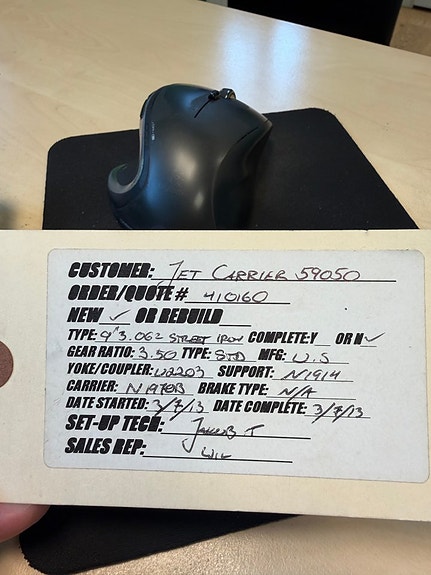 CUSTOMER: JET CARRIER 59050
ORDER/QUOTE # 410160
NEW ✓ OR REBUILD
TYPE: 9" 3.062 STREET IRON COMPLETE: Y OR N ✓
GEAR RATIO: 3.50 TYPE: STD MFG: U.S
YOKE/COUPLER: U2203 SUPPORT: N1914
CARRIER: N1970B BRAKE TYPE: N/A
DATE STARTED: 3/7/13 DATE COMPLETE: 3/7/13
SET-UP TECH: T
SALES REP: